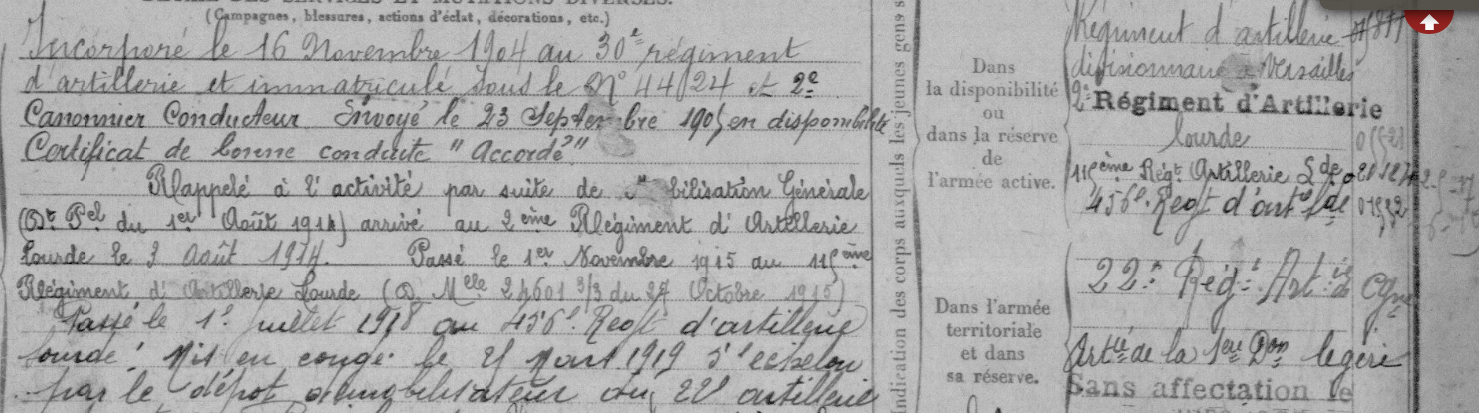 (Campagnes, blessures, actions d'éclat, décorations, etc.)
Incorporé le 16 Novembre 1904 au 30e régiment
d'artillerie et immatriculé sous le N° 4424 et 2e
Canonnier Conducteur. Envoyé le 23 Septembre 1905 en disponibilité
Certificat de bonne conduite "Accordé"
Rappelé à l'activité par suite de mobilisation Générale
(Dt Pel du 1er Août 1914) arrivé au 2ème Régiment d'Artillerie
Lourde le 3 Août 1914. Passé le 1er Novembre 1915 au 115ème
Régiment d'Artillerie Lourde (D. Melle 24601 3/3 du 27 Octobre 1915)
Passé le 1er Juillet 1918 au 456e Regt d'artillerie
lourde. Mis en congé le 21 Mars 1919 5e echelon
par le dépôt démobilisateur du 22e artillerie
Indication des corps auxquels les jeunes gens s
Dans
la disponibilité
ou
dans la réserve
de
l'armée active.
Dans l'armée
territoriale
et dans
sa réserve.
Régiment d'artillerie
divisionnaire à Versailles
2e Régiment d'Artillerie
lourde
115ème Régt Artillerie Lde
456e Regt d'art Lde
22e Régt Artie
Artie de la 1ere Don legère
Sans affectation le